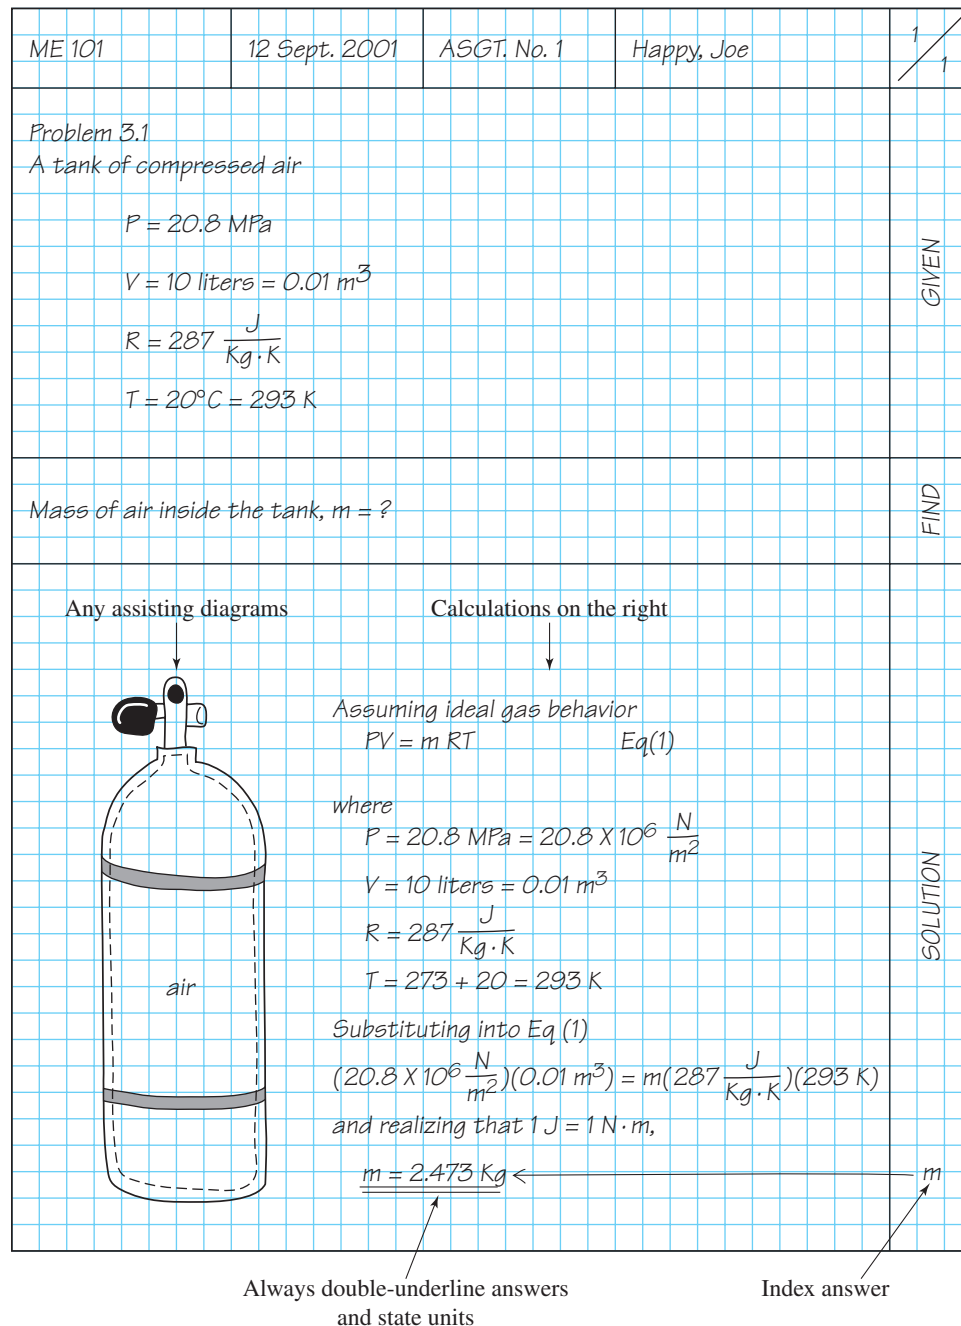 ME 101 12 Sept. 2001 ASGT. No. 1 Happy, Joe 1/1
Problem 3.1
A tank of compressed air
P = 20.8 MPa
V = 10 liters = 0.01 m³
R = 287 J/Kg · K
T = 20°C = 293 K
GIVEN
Mass of air inside the tank, m = ?
FIND
Any assisting diagrams
Calculations on the right
Assuming ideal gas behavior
PV = m RT Eq(1)
where
P = 20.8 MPa = 20.8 X 10⁶ N/m²
V = 10 liters = 0.01 m³
R = 287 J/Kg · K
T = 273 + 20 = 293 K
air
Substituting into Eq (1)
(20.8 X 10⁶ N/m²)(0.01 m³) = m(287 J/Kg · K)(293 K)
and realizing that 1 J = 1 N · m,
m = 2.473 Kg m
SOLUTION
Always double-underline answers
and state units
Index answer